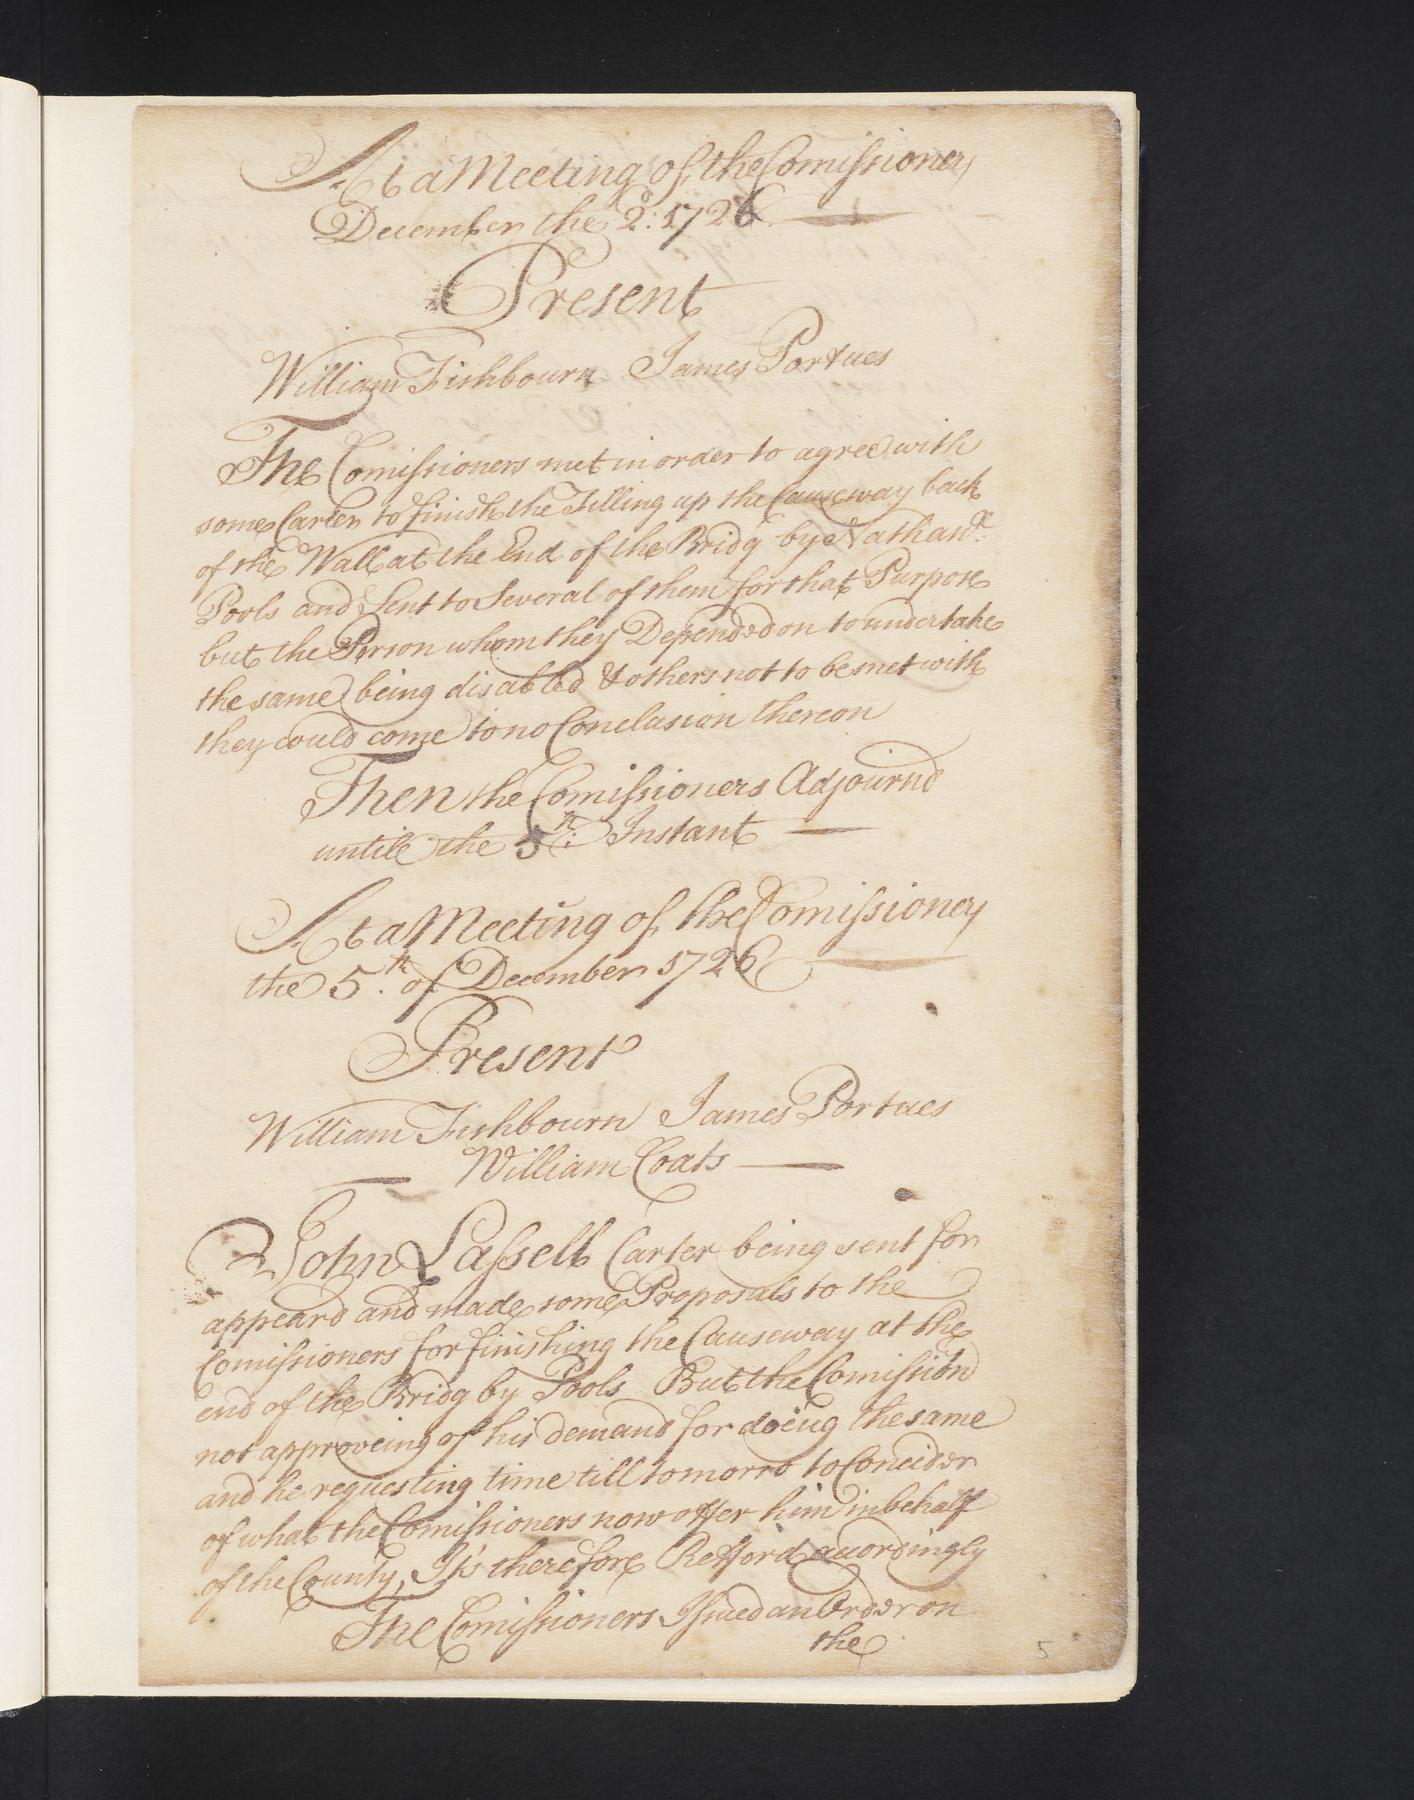 At a Meeting of the Comissioners
December the 2d: 1726
Present
William Fishbourn James Portues
The Comissioners met in order to agree with
some Carter to finish the Filling up the Causeway back
of the Wall at the End of the Bridg by Nathan ll:
Pools and Sent to Several of them for that Purpose
but the Person whom they Depended on to undertake
the same being disabled & others not to be met with
they could come to no Conclusion thereon
Then the Comissioners Adjournd
untill the 5th: Instant
At a Meeting of the Comissioners
the 5th. of December 1726
Present
William Fishbourn James Portues
William Coats
John Lassell Carter being sent for
appeard and made some Proposals to the
Comissioners for finishing the Causeway at the
end of the Bridg by Pools But the Comissiond
not approveing of his demand for doeing the same
and he requesting time till tomorro to Concider
of what the Comissioners now offer him in behalf
of the County, It's therefore Refford accordingly
The Comissioners Issued an Order on
the
5